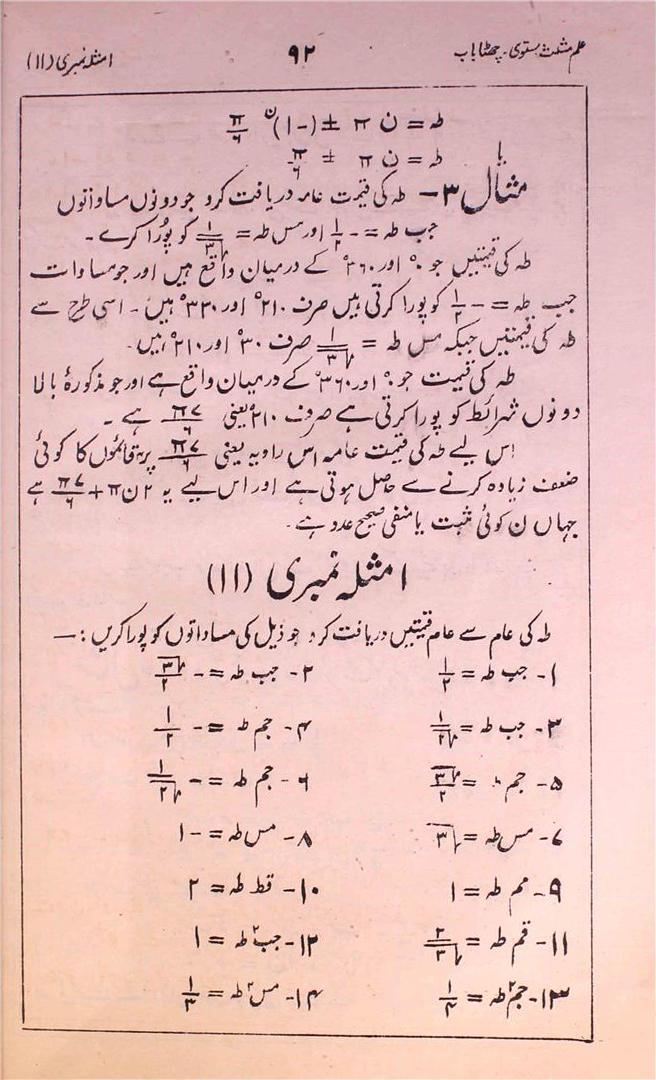 علم مثلث مستوی۔ چھٹا باب ۹۲ امثلہ نمبری (۱۱)
طہ = ن π ± (-۱)^ن π/۶
یا طہ = ن π ± π/۶
مثال ۳- طہ کی قیمت عامہ دریافت کرو جو دونوں مساواتوں
جب طہ = -۱/۲ اور مس طہ = ۱/√۳ کو پورا کرے۔
طہ کی قیمتیں جو ۰° اور ۳۶۰° کے درمیان واقع ہیں اور جو مساوات
جب طہ = -۱/۲ کو پورا کرتی ہیں صرف ۲۱۰° اور ۳۳۰° ہیں۔ اسی طرح سے
طہ کی قیمتیں جبکہ مس طہ = ۱/√۳ صرف ۳۰° اور ۲۱۰° ہیں۔
طہ کی قیمت جو ۰° اور ۳۶۰° کے درمیان واقع ہے اور جو مذکورۂ بالا
دونوں شرائط کو پورا کرتی ہے صرف ۲۱۰° یعنی ۷π/۶ ہے۔
اس لیے طہ کی قیمت عامہ اس زاویہ یعنی ۷π/۶ پر ۴ قائموں کا کوئی
ضعف زیادہ کرنے سے حاصل ہوتی ہے اور اس لیے یہ ۲ن π + ۷π/۶ ہے
جہاں ن کوئی مثبت یا منفی صحیح عدد ہے۔
امثلہ نمبری (۱۱)
طہ کی عام سے عام قیمتیں دریافت کرو جو ذیل کی مساواتوں کو پورا کریں:—
۱- جب طہ = ۱/۲ ۲- جب طہ = -√۳/۲
۳- جب طہ = ۱/√۲ ۴- جم طہ = -۱/۲
۵- جم طہ = √۳/۲ ۶- جم طہ = -۱/√۲
۷- مس طہ = √۳ ۸- مس طہ = -۱
۹- مم طہ = ۱ ۱۰- قط طہ = ۲
۱۱- قم طہ = ۲/√۳ ۱۲- جب² طہ = ۱
۱۳- جم² طہ = ۱/۴ ۱۴- مس² طہ = ۱/۳